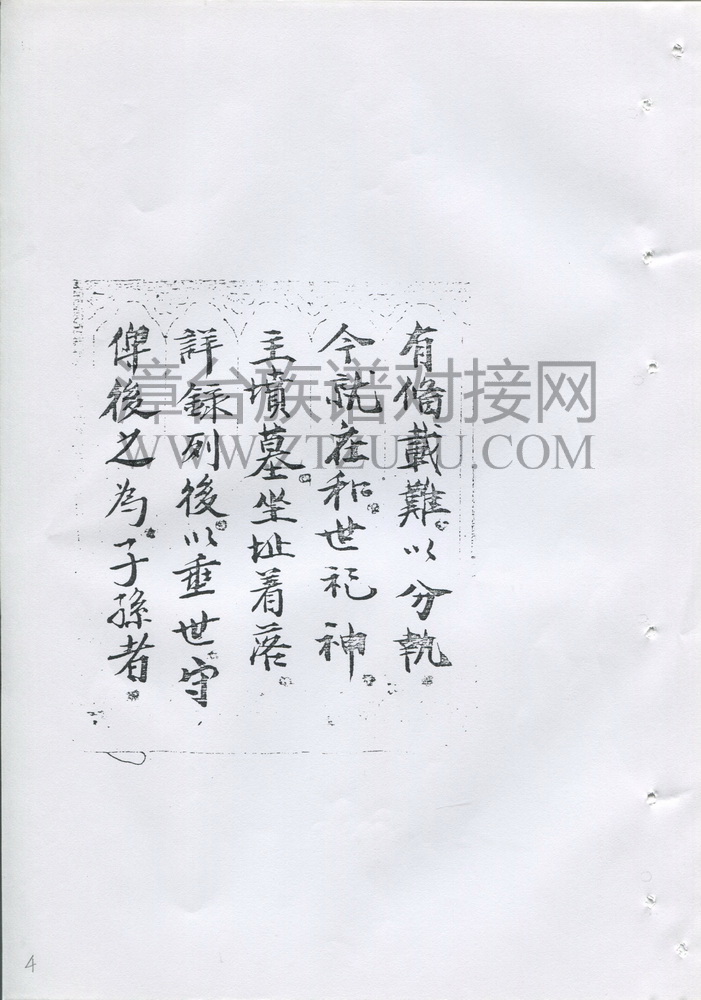 有脩載難以分執
今就在和世祀神
主墳墓坐址着落
詳錄列後以重世守
俾後之為子孫者
漳台族谱对接网
WWW.ZTZUPU.COM
4